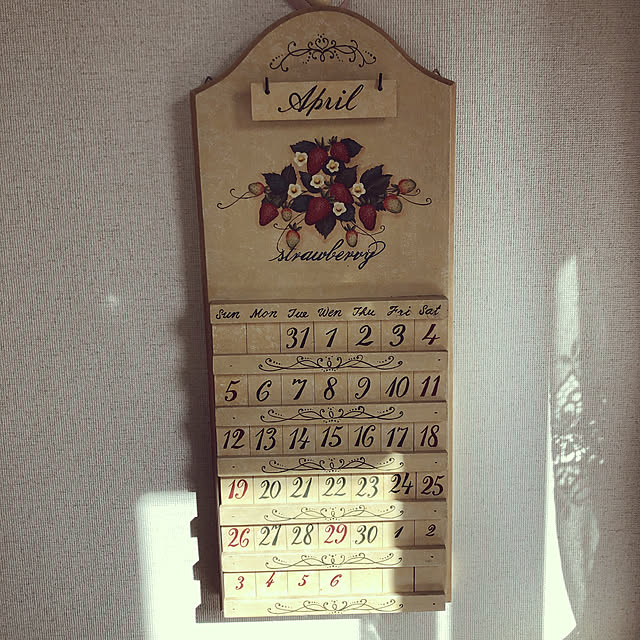 April
strawberry
Sun Mon Tue Wen Thu Fri Sat
31 1 2 3 4
5 6 7 8 9 10 11
12 13 14 15 16 17 18
19 20 21 22 23 24 25
26 27 28 29 30 1 2
3 4 5 6